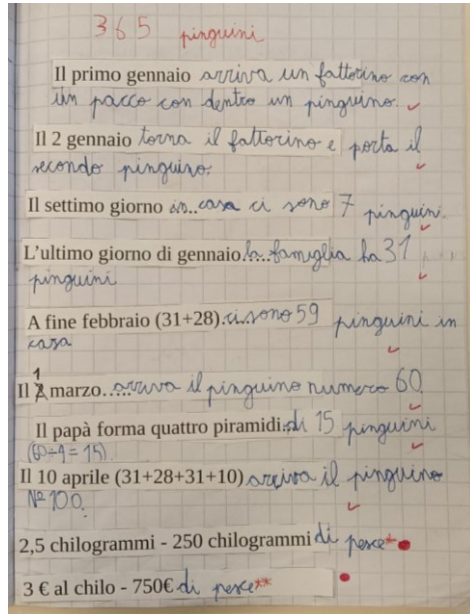 365 pinguini
Il primo gennaio arriva un fattorino con
un pacco con dentro un pinguino.
Il 2 gennaio torna il fattorino e porta il
secondo pinguino.
Il settimo giorno in..casa ci sono 7 pinguini.
L'ultimo giorno di gennaio.la...famiglia ha 31
pinguini
A fine febbraio (31+28).ci.sono 59 pinguini in
casa
Il 1 marzo.....arriva il pinguino numero 60
Il papà forma quattro piramidi.di 15 pinguini
(60÷4=15)
Il 10 aprile (31+28+31+10) arriva il pinguino
N° 100.
2,5 chilogrammi - 250 chilogrammi di pesce*
3 € al chilo - 750€ di pesce**